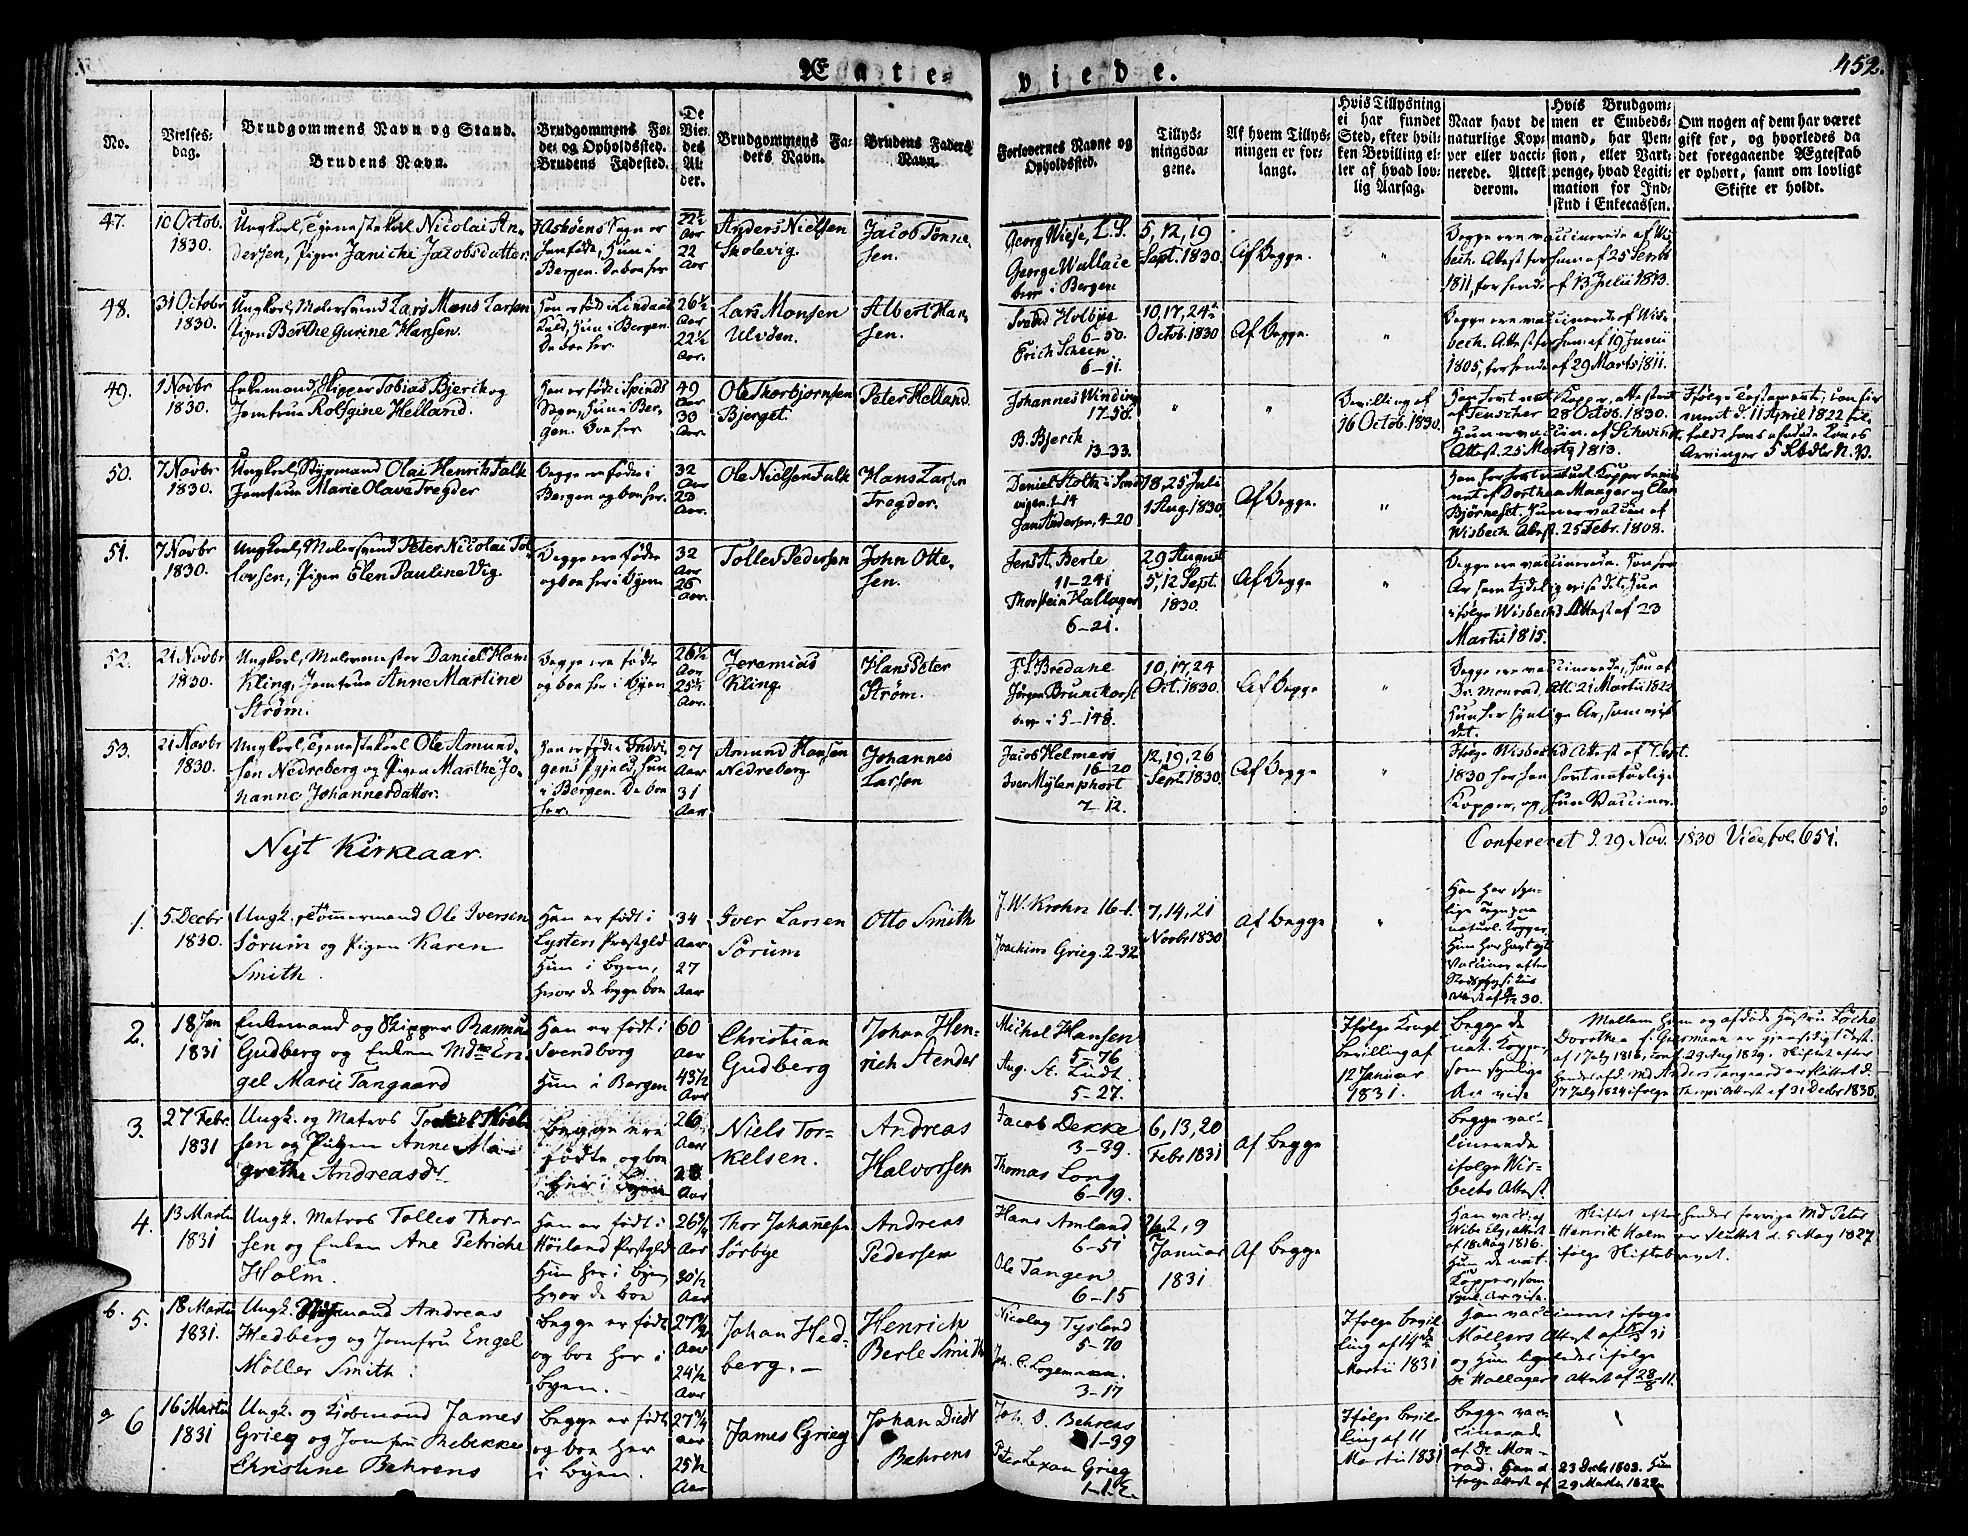 Ægte=
viede.
452.
No.
Vielses-
dag.
Brudgommens Navn og Stand.
Brudens Navn.
Brudgommens Fø-
de- og Opholdssted.
Brudens Fødested.
De
Vie-
des
Al-
der.
Brudgommens Fa-
ders Navn.
Brudens Faders
Navn.
Forlovernes Navne og
Opholdssted.
Tillys-
ningsda-
gene.
Af hvem Tillys-
ningen er for-
langt.
Hvis Tillysning
ei har fundet
Sted, efter hvil-
ken Bevilling el-
ler af hvad lov-
lig Aarsag.
Naar havt de
naturlige Kop-
per eller vacci-
nerede. Attest
derom.
Hvis Brudgom-
men er Embeds-
mand, har Pen-
sion, eller Vart-
penge, hvad Legiti-
mation for Ind-
skud i Enkecassen.
Om nogen af dem har været
gift før, og hvorledes da
det foregaaende Ægteskab
er ophørt, samt om lovligt
Skifte er holdt.
47.
10 Octob.
1830.
Ungkarl, Tjenestekarl Nicolai An-
dersen, Pigen Janiche Jacobsdatter.
Askøens Sogn er
han født, Hun i
Bergen. De boe her
22½
Aar
22
Aar
Anders Nielsen
Skolevig.
Jacob Tønne-
sen.
Georg Wiese, L.S.
George Wallace
i Bergen
5, 12, 19
Sept. 1830.
Af Begge.
"
Begge ere vaccinerede af Wis-
bech. Attest for ham af 25 Septb
1811, for hende af 13 Julii 1813.
48.
31 Octobr
1830.
Ungkarl, Malersvend Lars Mons Larsen
Pigen Berthe Gurine Hansen.
Han er født i Lindaas
Hun i Bergen.
De boe her.
26½
Aar
22½
Aar.
Lars Monsen
Ulvden.
Albert Han-
sen.
Holbye
6-50.
Erich Schein
6-11.
10, 17, 24
Octob. 1830
Af Begge.
"
Begge ere vaccinerede af Wis-
bech. Attest for ham af 19 Junii
1805, for hende af 29 Marts 1811.
49.
1 Novbr
1830.
Enkemand, Skipper Tobias Bjerck og
Jomfrue Rolfgine Helland.
Han er født i Spinds
Sogn, Hun i Ber-
gen. Boe her
49
Aar
30
Aar.
Ole Thorbjørnsen
Bjerget.
Peter Helland.
Johannes Winding
17-50.
B. Bjerck
13-33.
"
"
Bevilling af
16 Octob. 1830.
Han havt nat. Kopper, Attesteret
af Teuscher 28 Octob. 1830.
Hun er vaccin. af Schwindt,
Attest. 25 Marts 1813.
Ifølge Testamente, confir-
meret d. 11 April 1822
hans afdøde Kones
Arvinger 5 Rbdlr N.V.
50.
7 Novbr
1830.
Ungkarl, Styrmand Olai Henrik Falk
Jomfrue Marie Olava Tregder
Begge ere fødte i
Bergen og boe her.
32
Aar
20
Aar.
Ole Nielsen Falk
Hans Larsen
Tregder.
Daniel Stoltz i Sand-
vigen. 1-14
Jan Andersen, 4-20
18, 25 Juli
1 Aug. 1830.
Af Begge.
"
Han har havt naturl. Kopper bevid-
net af Dorthea Maager og Elen
Bjørneset. Hun er vaccin. af
Wisbech Attest. 25 Febr. 1808.
51.
7 Novbr
1830.
Ungkarl, Malersvend Peter Nicolai Tol-
lovsen, Pigen Elen Pauline Vig
Begge ere fødte
og boe her i Byen
32
Aar
26
Aar.
Tolles Pedersen
John Otte-
sen.
Jens A. Berle
11-241
Thorstein Hallager
6-21.
29 August
5, 12 Sept.
1830.
Af Begge
"
Begge ere vaccinerede. Han har
Ar som tydelig vise det, Hun
ifølge Wisbechs Attest af 23
Martii 1815.
52.
21 Novbr
1830.
Ungkarl, Malermester Daniel Ham
Kling, Jomfrue Anne Martine
Strøm.
Begge ere fødte
og boe her i Byen
26½
Aar
25½
Aar.
Jeremias
Kling.
Hans Peter
Strøm.
F. L. Bredane
Jørgen Brunckorst
begge i 5-148.
10, 17, 24
Oct. 1830.
Af Begge.
"
Begge ere vaccinerede, han af
Dr. Monrad, Att. 21 Martii 1822
Hun har synlige Ar, som viser
det.
53.
21 Novbr
1830.
Ungkarl, Tjenestekarl Ole Amund-
sen Nedreberg og Pigen Marthe Jo-
hanne Johannesdatter.
Han er født i Indvi-
gens Pgjeld, Hun
i Bergen. De boe
her.
27
Aar
31
Aar
Amund Hansen
Nedreberg
Johannes
Larsen
Jacob Helmers
16-20
Iver Mylenphort
7-12.
12, 19, 26
Sept. 1830
Af Begge
"
Ifølge Wisbechs Attest af 7 Sept.
1830 har han havt naturlige
Kopper, og hun Vacciner.
Nyt Kirkeaar.
Confereret d. 29 Nov. 1830 Vide fol. 651.
1.
5. Decbr
1830.
Ungk. Tømmermand Ole Iversen
Sørum og Pigen Karen
Smith.
Han er født i
Lysters Præstgld
Hun i Byen,
hvor de begge boe
34
Aar
27
Aar
Iver Larsen
Sørum
Otto Smith
J. W. Krohn 16-1.
Joachim Grieg. 2-32
7, 14, 21
Novbr 1830
Af begge
"
Han har syn-
lige Tegn paa
naturl. Kopper.
Hun har havt
Vacciner efter
Stadsphysicus
30.
2.
18 Jan
1831
Enkemand og Skipper Rasmus
Gudberg og Enken Mdme En-
gel Marie Tangaard
Han er født i
Svendborg
Hun i Bergen
60
Aar
43½
Aar
Christian
Gudberg
Johan Hen-
rich Stender
Michel Hansen
5-76
Aug. H. Lüdt.
5-27.
Ifølge Kongl
bevilling af
12 Januar
1831.
Begge de
nat. Kopper,
som synlige
Ar vise
Mellem ham og afdøde Hustru Løche
Dorothea f. Gusmann er gjensidig Test.
af 1 July 1816, conf. 29 Aug 1829. Skiftet efter
hendes afd. Md Anders Tangaard er sluttet d.
17 July 1829 ifølge Attest af 31 Decbr 1830.
3.
27 Febr.
1831
Ungk. og Matros Torkel Niel-
sen og Pigen Anne Ma-
grethe Andreasdr.
Begge ere
fødte og boe
her i Byen
26
Aar
28
Aar
Niels Tor-
kelsen.
Andreas
Halvorsen
Jacob Dekke
3-39.
Thomas Long
6-19.
6, 13, 20
Febr 1831
Af begge
Begge vac-
cinerede
ifølge Wis-
bechs Attest.
4.
13 Martii
1831
Ungk. Matros Tolles Thor-
sen og Enken Ane Petriche
Holm.
Han er født i
Høiland Prstgld
Hun her i Byen,
hvor de boe
26¾
Aar
30½
Aar
Thor Johannesen
Sørbye
Andreas
Pedersen
Hans Amland
6-51
Ole Tangen
6-15
26 2, 9
Januar
1831.
Af begge
Han vacc. af
attest
af 18 May 1816.
Hun de nat.
Kopper, som
synl. Ar vise.
Skiftet efter hendes forrige Md Peter
Henrik Holm er sluttet d. 5 May 1827
ifølge Skiftebrevet.
b. 5.
18 Martii
1831.
Ungk. Styrmand Andreas
Hedberg og Jomfru Engel
Möller Smith.
Begge er født
og boe her i
byen.
27¾
Aar
24½
Aar
Johan Hed-
berg.
Henrich
Berle Smith
Nicolay Tysland
5-70
Joh. C. Logemann.
3-17
Ifølge bevil-
ling af 14de
Martii 1831
Han vaccineret ifølge
Møllers Attest af 31
og Hun ligeledes ifølge
Dr Hallagers Attest af 28/8-11.
a 6
16 Martii
1831
Ungk. og Kiøbmand James
Grieg og Jomfru Rebekke
Christine Behrens
Begge er født
og boe her
i byen.
27¾
Aar
25½
Aar
James Grieg
Johan Diedr
Behrens
Joh. D. Behrens
1-39
Peter Lexau Grieg
Ifølge bevil-
ling af 11
Martii 1831
Begge vac-
cinerede
af Dr Mon-
rad. Han
ifølge Attest af
23 Decbr 1803. Hun
29 Martii